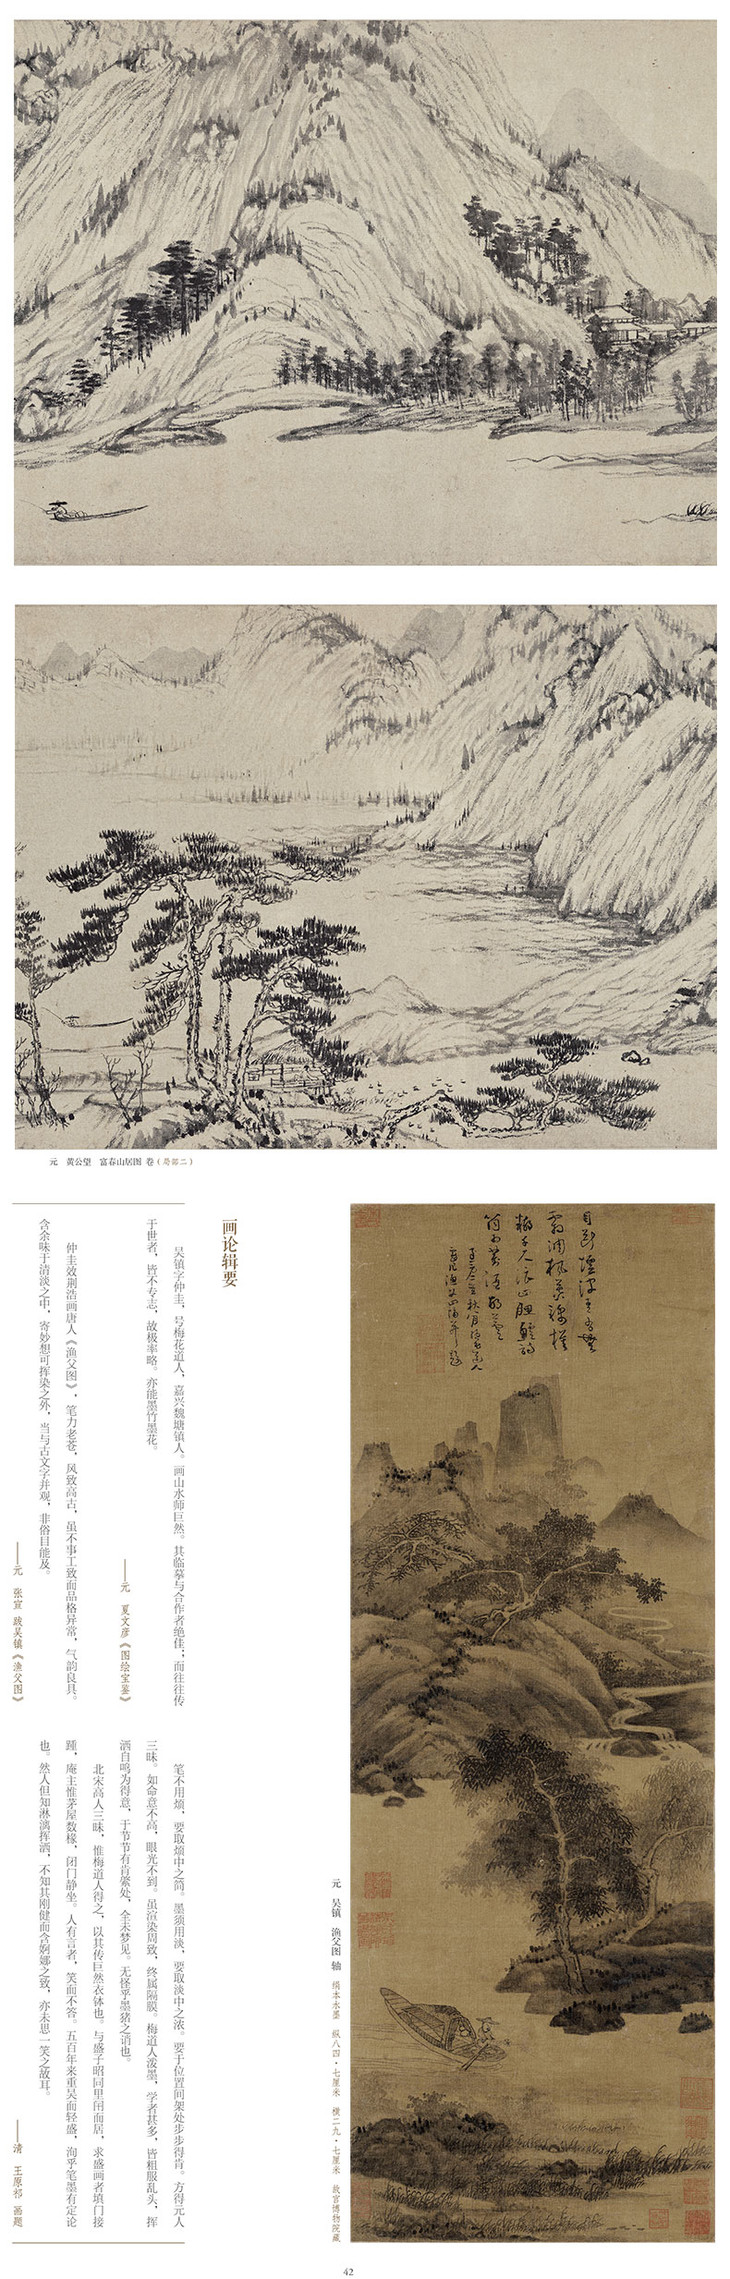 元　黄公望　富春山居图 卷（局部二）
目断烟波青有无
霜凋枫叶锦模
糊千尺浪四腮鲈诗
筒相对酒葫芦
元　吴镇　渔父图 轴　绢本水墨　纵八四·七厘米　横二九·七厘米　故宫博物院藏
画论辑要
吴镇字仲圭，号梅花道人，嘉兴魏塘镇人。画山水师巨然。其临摹与合作者绝佳；而往往传
于世者，皆不专志，故极率略。亦能墨竹墨花。
——元　夏文彦《图绘宝鉴》
仲圭效荆浩画唐人《渔父图》，笔力老苍，风致高古，虽不事工致而品格异常，气韵良具。
含余味于清淡之中，寄妙想可挥染之外，当与古文字并观，非俗目能及。
——元　张宣 跋吴镇《渔父图》
笔不用烦，要取烦中之简。墨须用淡，要取淡中之浓。要于位置间架处步步得肯。方得元人
三昧。如命意不高，眼光不到。虽渲染周致，终属隔膜。梅道人泼墨，学者甚多，皆粗服乱头，挥
洒自鸣为得意，于节节有肯綮处，全未梦见。无怪乎墨猪之诮也。
北宋高人三昧，惟梅道人得之，以其传巨然衣钵也。与盛子昭同里闬而居，求盛画者填门接
踵，庵主惟茅屋数椽，闭门静坐。人有言者，笑而不答。五百年来重吴而轻盛，洵乎笔墨有定论
也。然人但知淋漓挥洒，不知其刚健而含婀娜之致，亦未思一笑之故耳。
——清　王原祁 画题
42